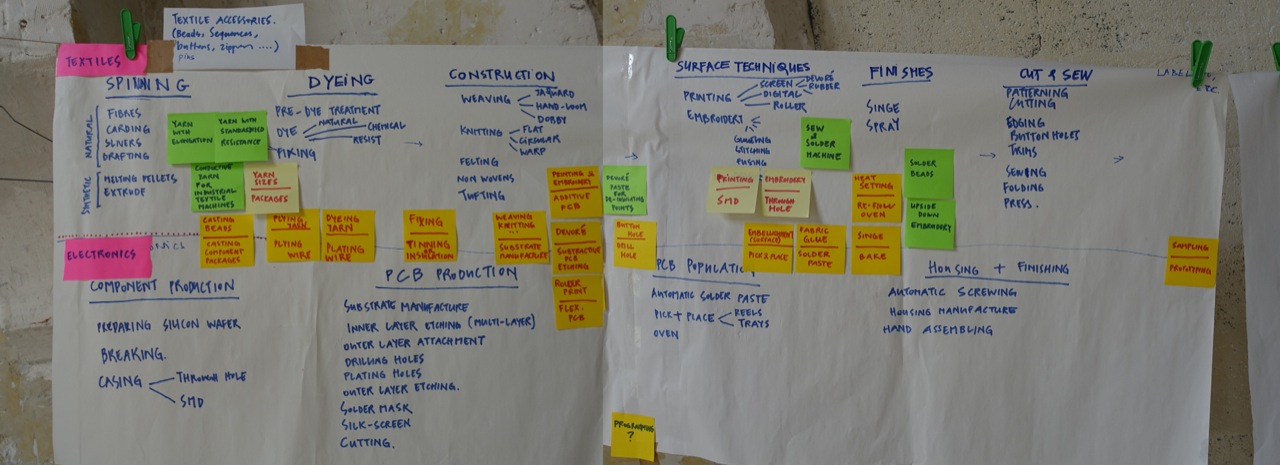 TEXTILE ACCESSORIES.
(Beads, Sequences,
buttons, zippers ....)
pins
TEXTILES
SPINNING
NATURAL
FIBRES
CARDING
SLIVERS
DRAFTING
SYNTHETIC
MELTING PELLETS
EXTRUDE
YARN WITH ELONGATION
YARN WITH STANDARDISED RESISTANCE
CONDUCTIVE
YARN
FOR
INDUSTRIAL
TEXTILE
MACHINES
YARN
SIZES
PACKAGES
DYEING
PRE-DYE TREATMENT
DYE
NATURAL
CHEMICAL
RESIST
FIXING
CONSTRUCTION
WEAVING
JAQUARD
HAND-LOOM
DOBBY
KNITTING
FLAT
CIRCULAR
WARP
FELTING
NON WOVENS
TUFTING
SURFACE TECHNIQUES
PRINTING
SCREEN
DEVORÉ
RUBBER
DIGITAL
ROLLER
EMBROIDERY
STITCHING
FUSING
SEW
&
SOLDER
MACHINE
FINISHES
SINGE
SPRAY
CUT & SEW
PATTERNING
CUTTING
EDGING
BUTTON HOLES
TRIMS
SEWING
FOLDING
PRESS.
CASTING
BEADS
CASTING
COMPONENT
PACKAGES
PLYING
YARN
PLYING
WIRE
DYEING
YARN
PLATING
WIRE
FIXING
TINNING
OR
INSULATION
WEAVING
KNITTING
SUBSTRATE
MANUFACTURE
PRINTING &
EMBROIDERY
ADDITIVE
PCB
DEVORÉ
SUBTRACTIVE
PCB
ETCHING
ROLLER
PRINT
FLEX.
PCB
DEVORÉ
PASTE
FOR
DE-INSULATING
POINTS
BUTTON
HOLE
DRILL
HOLE
PRINTING
SMD
EMBROIDERY
THROUGH
HOLE
EMBELLISHMENT
PICK & PLACE
FABRIC
GLUE
SOLDER
PASTE
HEAT
SETTING
RE-FLOW
OVEN
SINGE
BAKE
SOLDER
BEADS
UPSIDE
DOWN
EMBROIDERY
SAMPLING
PROTOTYPING
ELECTRONICS
COMPONENT PRODUCTION
PREPARING SILICON WAFER
BREAKING.
CASING
THROUGH HOLE
SMD
PCB PRODUCTION
SUBSTRATE MANUFACTURE
INNER LAYER ETCHING (MULTI-LAYER)
OUTER LAYER ATTACHMENT
DRILLING HOLES
PLATING HOLES
OUTER LAYER ETCHING.
SOLDER MASK
SILK-SCREEN
CUTTING.
PCB POPULATIO
AUTOMATIC SOLDER PASTE
PICK + PLACE
REELS
TRAYS
OVEN
HOUSING + FINISHING
AUTOMATIC SCREWING
HOUSING MANUFACTURE
HAND ASSEMBLING
PROGRAMING
?